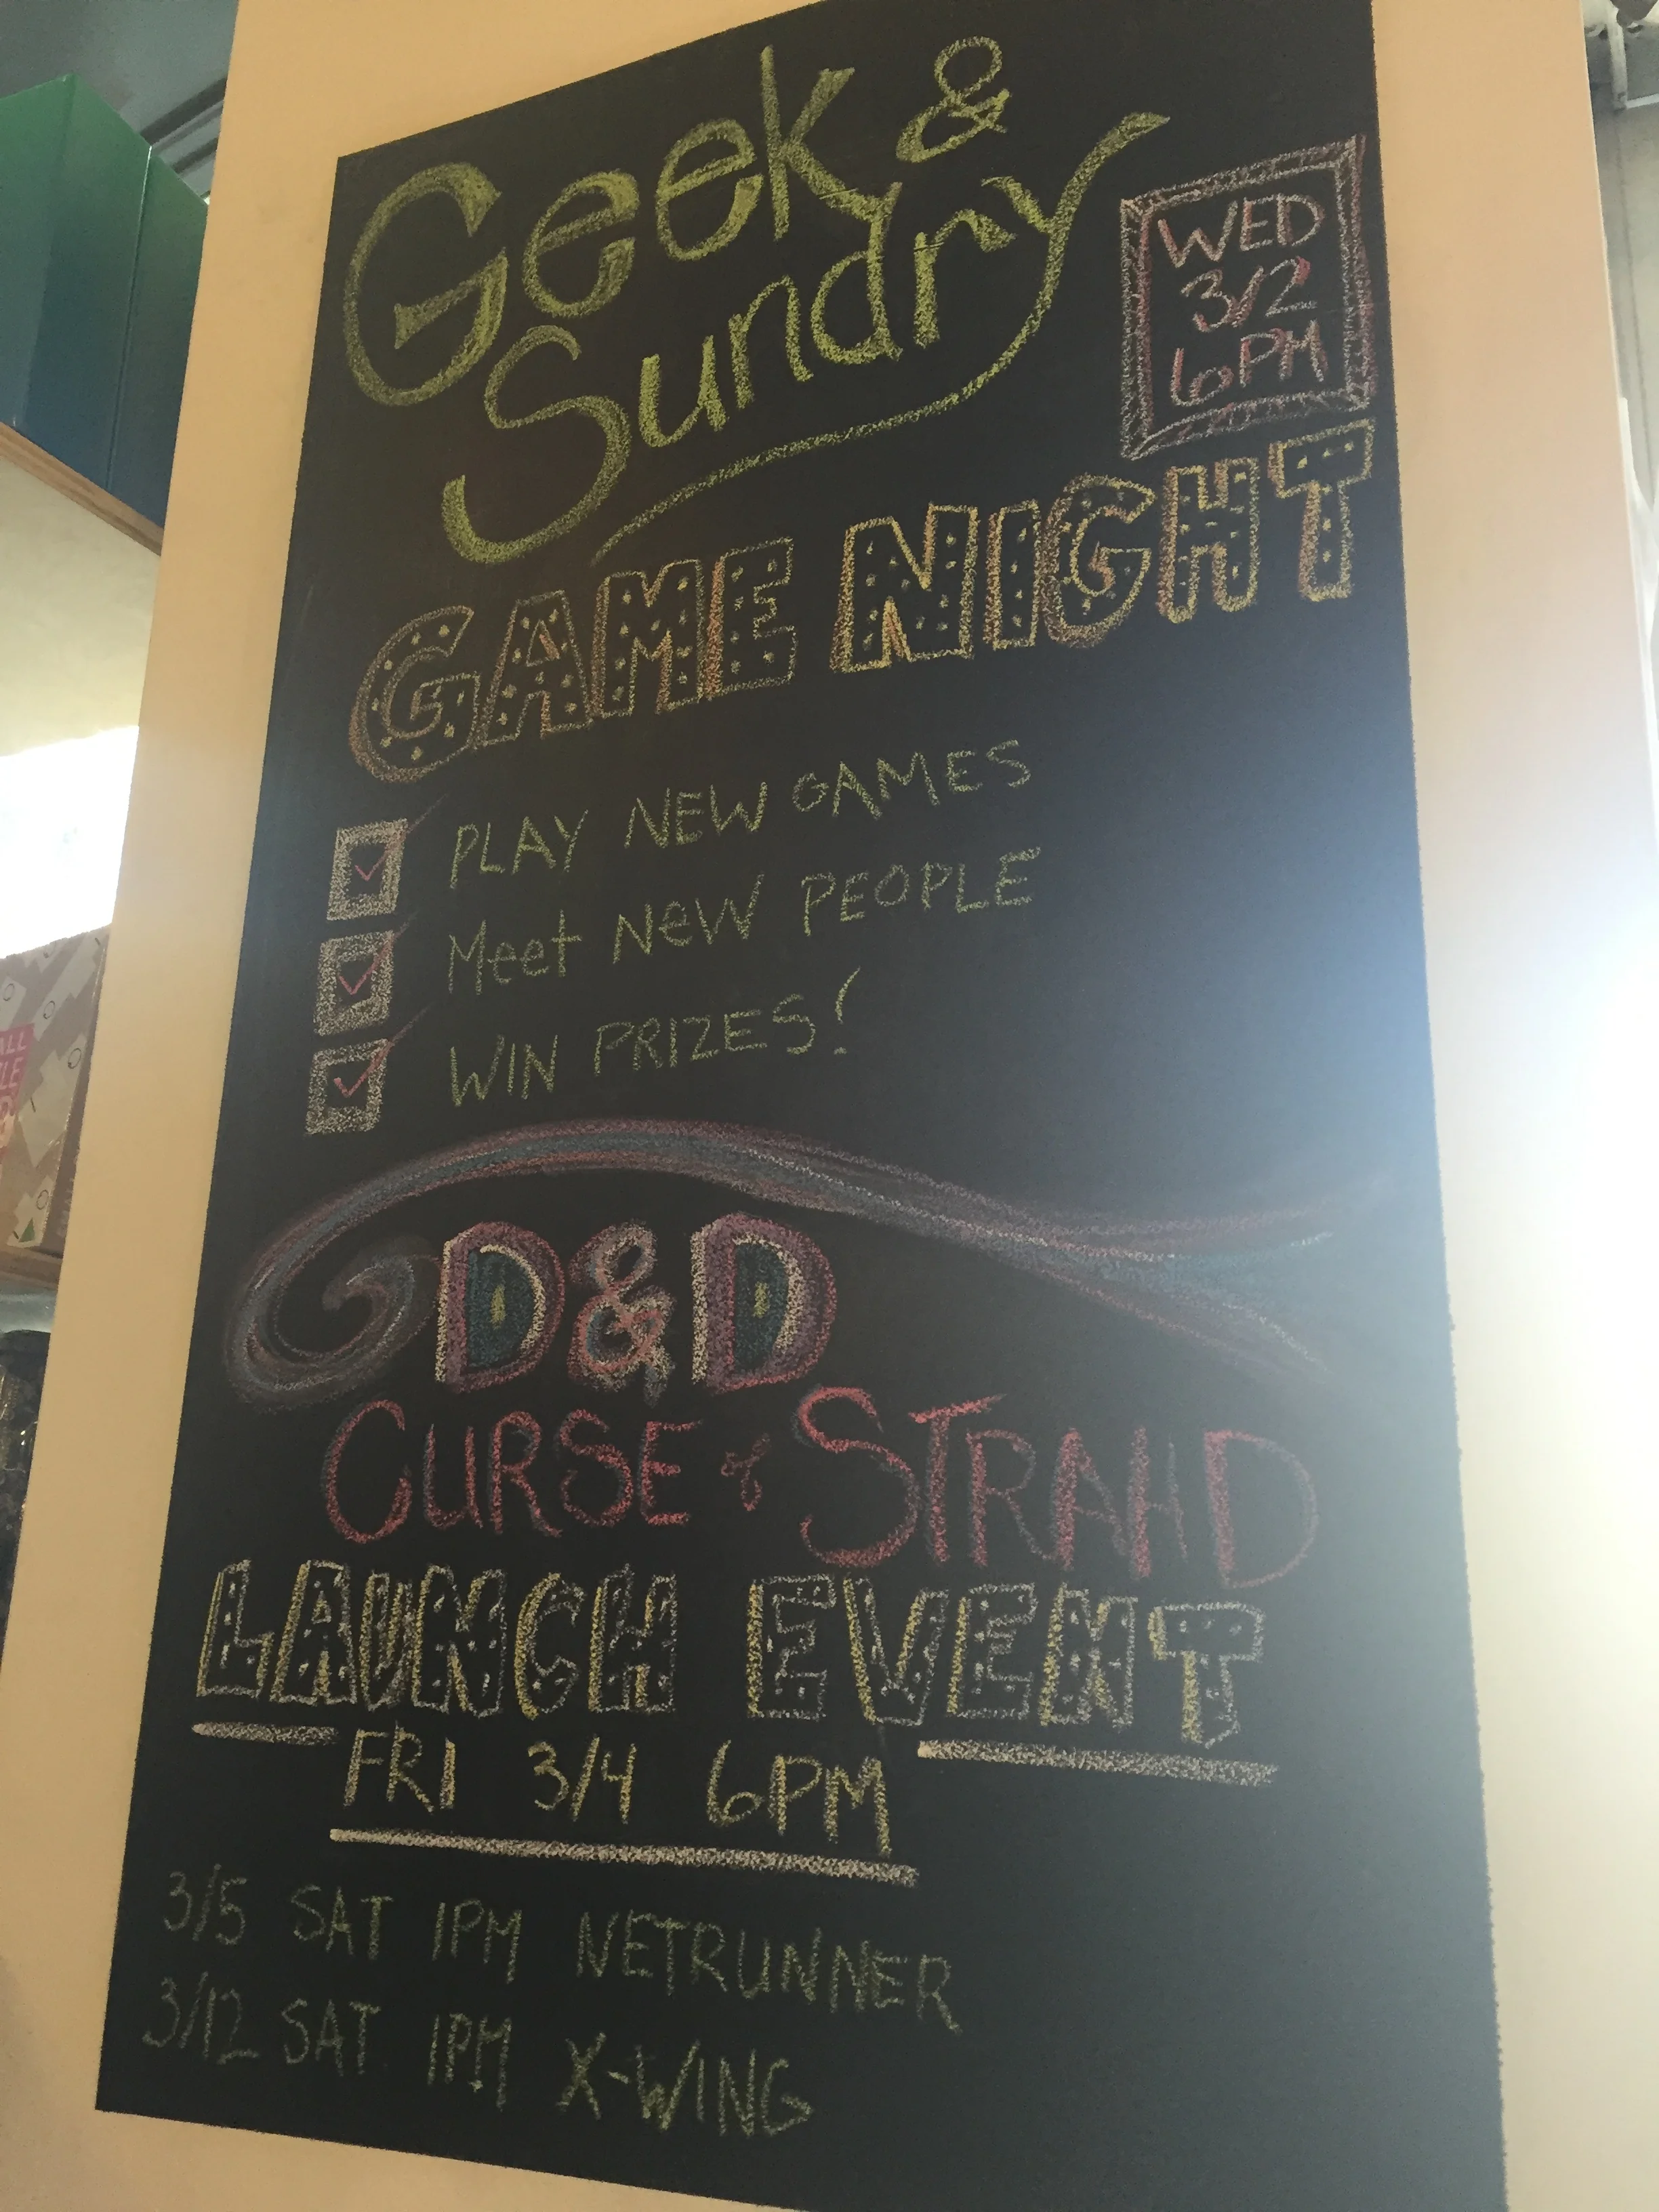 Geek &
Sundry
WED
3/2
6PM
GAME NIGHT
PLAY NEW GAMES
Meet NeW PEOPLE
WIN PRIZES!
D&D
CURSE of STRAHD
LAUNCH EVENT
FRI 3/4 6PM
3/5 SAT 1PM NETRUNNER
3/12 SAT 1PM X-WING